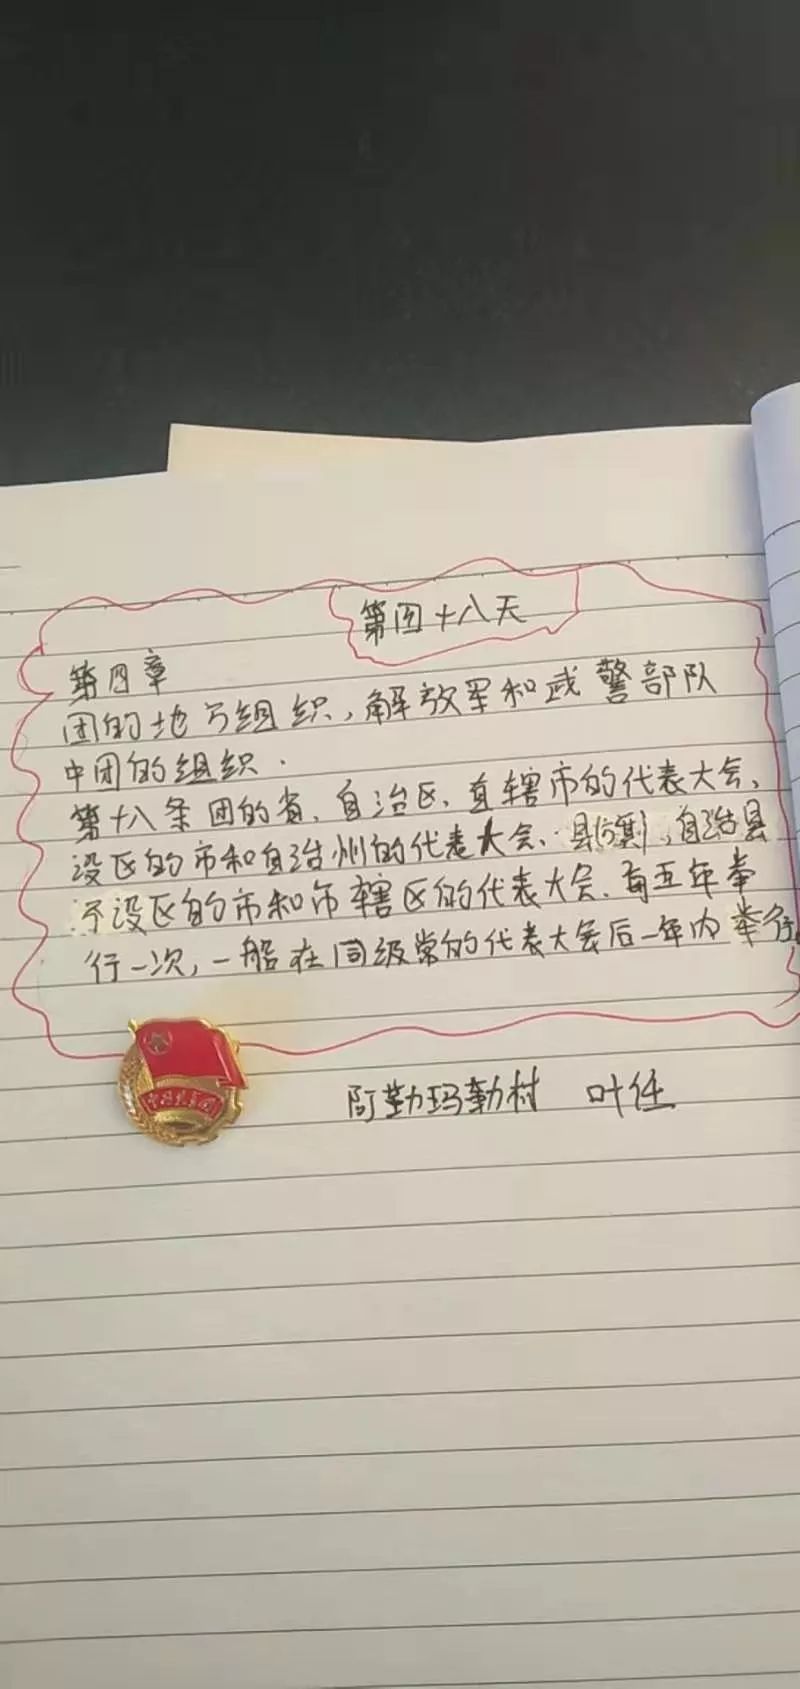 第四十八天
第四章
团的地方组织,解放军和武警部队
中团的组织.
第十八条 团的省、自治区、直辖市的代表大会、
设区的市和自治州的代表大会、县(旗),自治县
不设区的市和市辖区的代表大会、每五年举
行一次,一般在同级党的代表大会后一年内举行
中国共青团
阿勒玛勒村 叶任